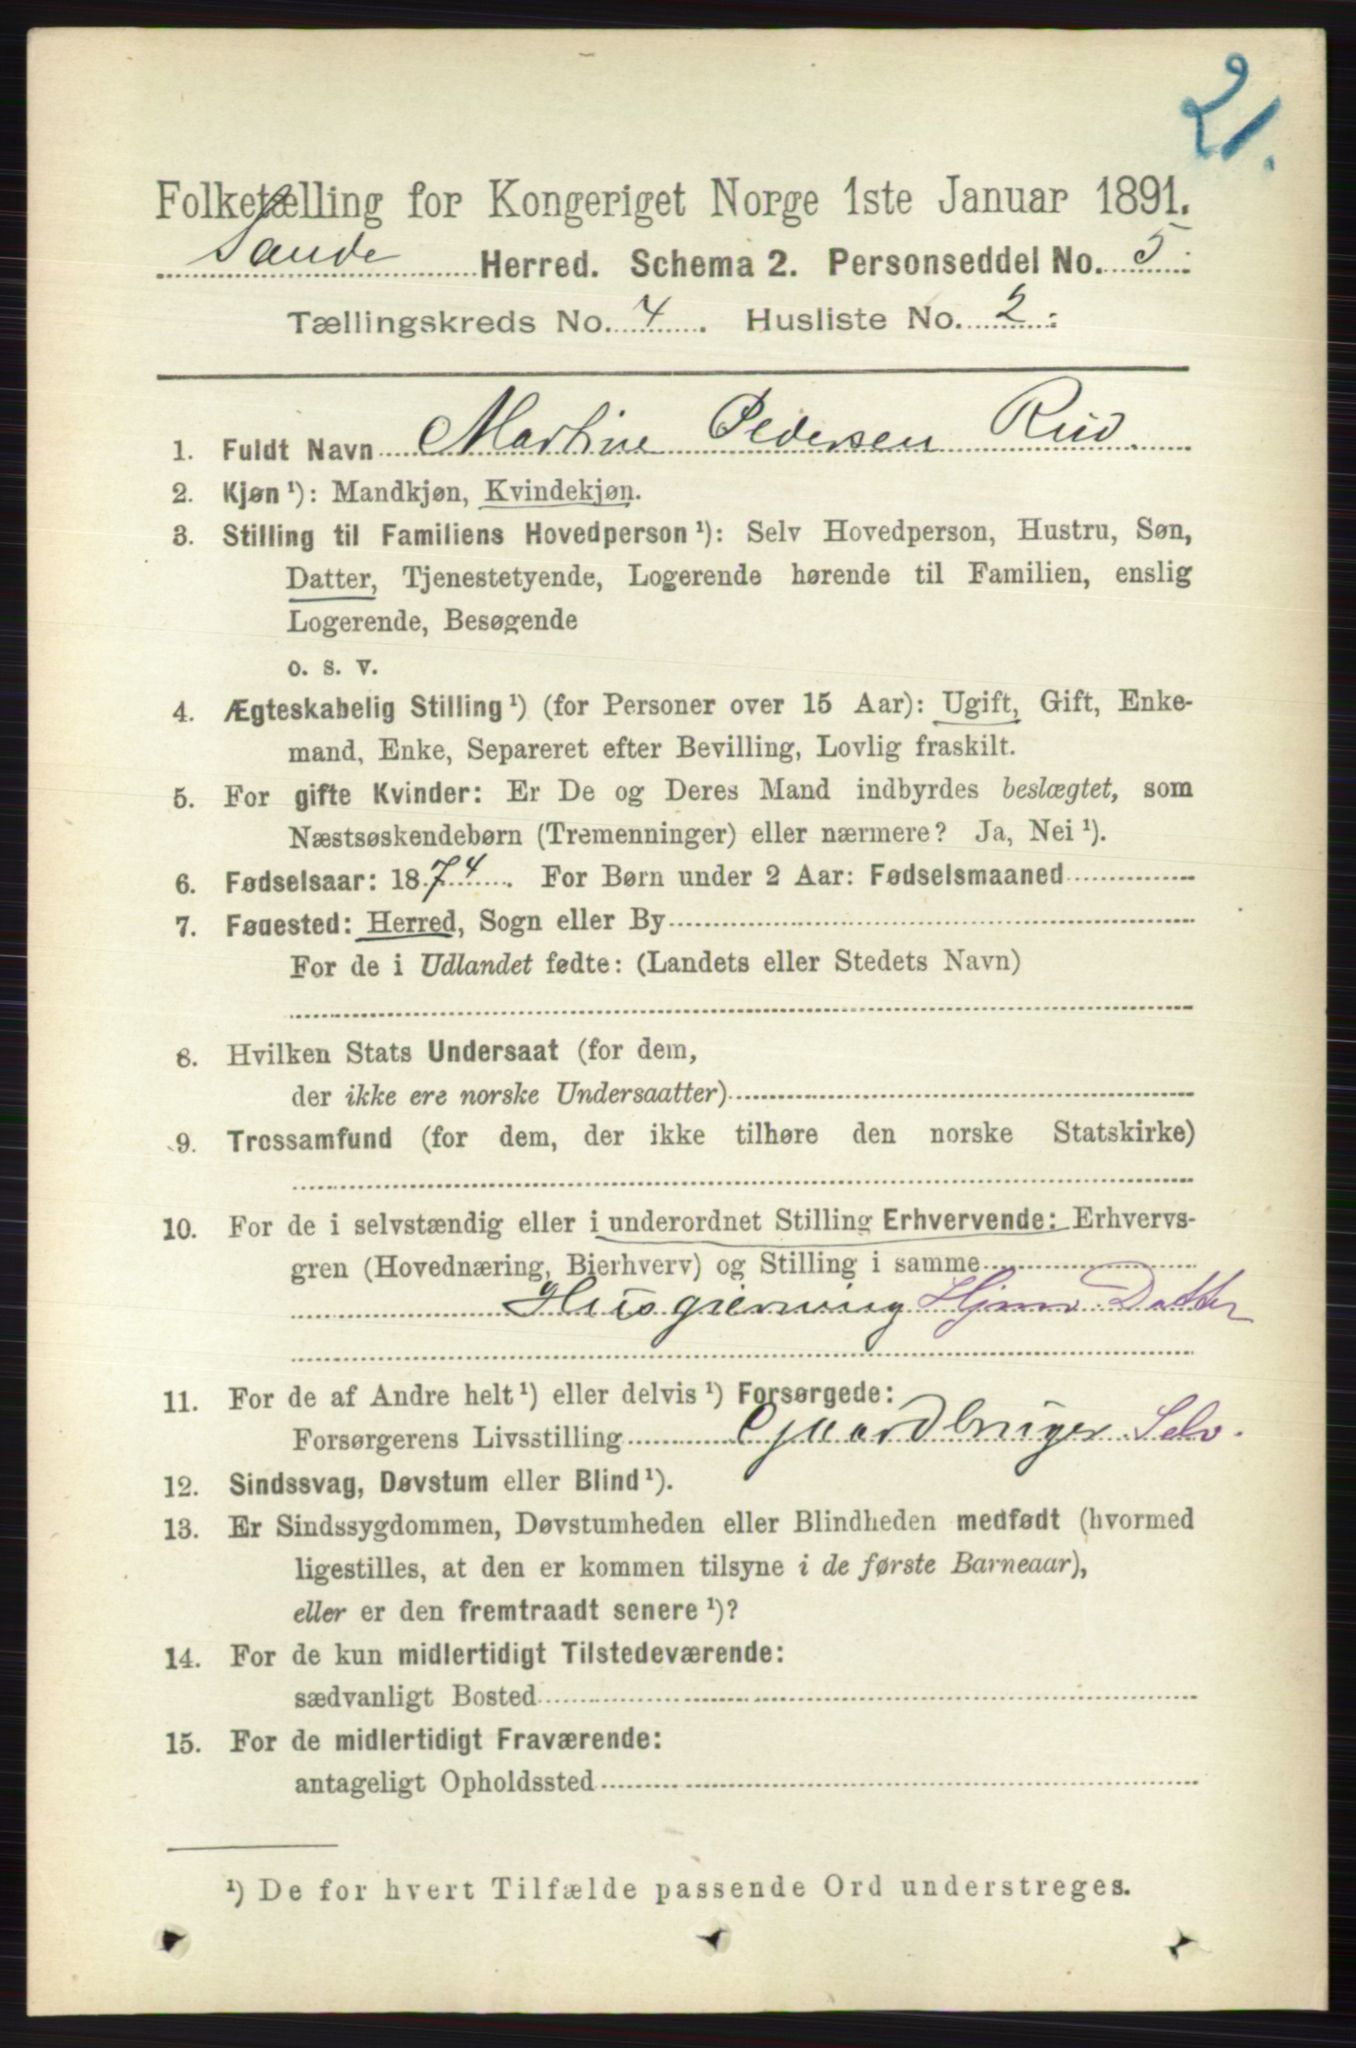 21.
Folketælling for Kongeriget Norge 1ste Januar 1891.
Sande Herred. Schema 2. Personseddel No. 5.
Tællingskreds No. 4. Husliste No. 2.
1. Fuldt Navn Martine Pedersen Rud
2. Kjøn ¹): Mandkjøn, Kvindekjøn.
3. Stilling til Familiens Hovedperson ¹): Selv Hovedperson, Hustru, Søn,
Datter, Tjenestetyende, Logerende hørende til Familien, enslig
Logerende, Besøgende
o. s. v.
4. Ægteskabelig Stilling ¹) (for Personer over 15 Aar): Ugift, Gift, Enke-
mand, Enke, Separeret efter Bevilling, Lovlig fraskilt.
5. For gifte Kvinder: Er De og Deres Mand indbyrdes beslægtet, som
Næstsøskendebørn (Tremenninger) eller nærmere? Ja, Nei ¹).
6. Fødselsaar: 1874. For Børn under 2 Aar: Fødselsmaaned
7. Fødested: Herred, Sogn eller By
For de i Udlandet fødte: (Landets eller Stedets Navn)
8. Hvilken Stats Undersaat (for dem,
der ikke ere norske Undersaatter)
9. Trossamfund (for dem, der ikke tilhøre den norske Statskirke)
10. For de i selvstændig eller i underordnet Stilling Erhvervende: Erhvervs-
gren (Hovednæring, Bierhverv) og Stilling i samme
Husgierning Hjmv Datter
11. For de af Andre helt ¹) eller delvis ¹) Forsørgede:
Forsørgerens Livsstilling Gaardbruger Selv.
12. Sindssvag, Døvstum eller Blind ¹).
13. Er Sindssygdommen, Døvstumheden eller Blindheden medfødt (hvormed
ligestilles, at den er kommen tilsyne i de første Barneaar),
eller er den fremtraadt senere ¹)?
14. For de kun midlertidigt Tilstedeværende:
sædvanligt Bosted
15. For de midlertidigt Fraværende:
antageligt Opholdssted
¹) De for hvert Tilfælde passende Ord understreges.